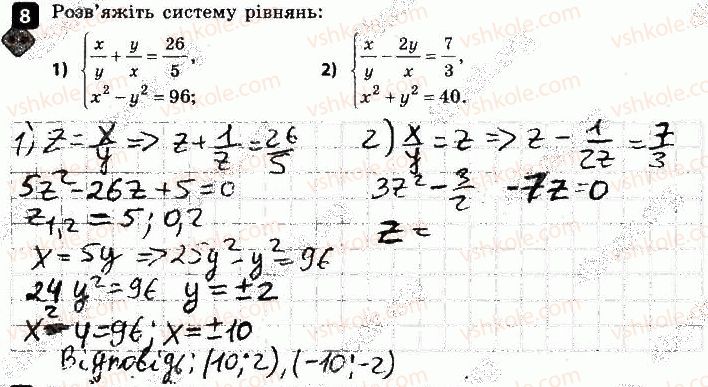 8 Розв'яжіть систему рівнянь:
1) { x/y + y/x = 26/5, x² − y² = 96;
2) { x/y − 2y/x = 7/3, x² + y² = 40.
1) z = x/y => z + 1/z = 26/5
5z² − 26z + 5 = 0
z₁,₂ = 5; 0,2
x = 5y => 25y² − y² = 96
24y² = 96 y = ±2
x² − 4 = 96; x = ±10
Відповідь: (10; 2), (−10; −2)
2) x/y = z => z − 1/2z = 7/3
3z² − 3/2 − 7z = 0
z =
vshkole.com